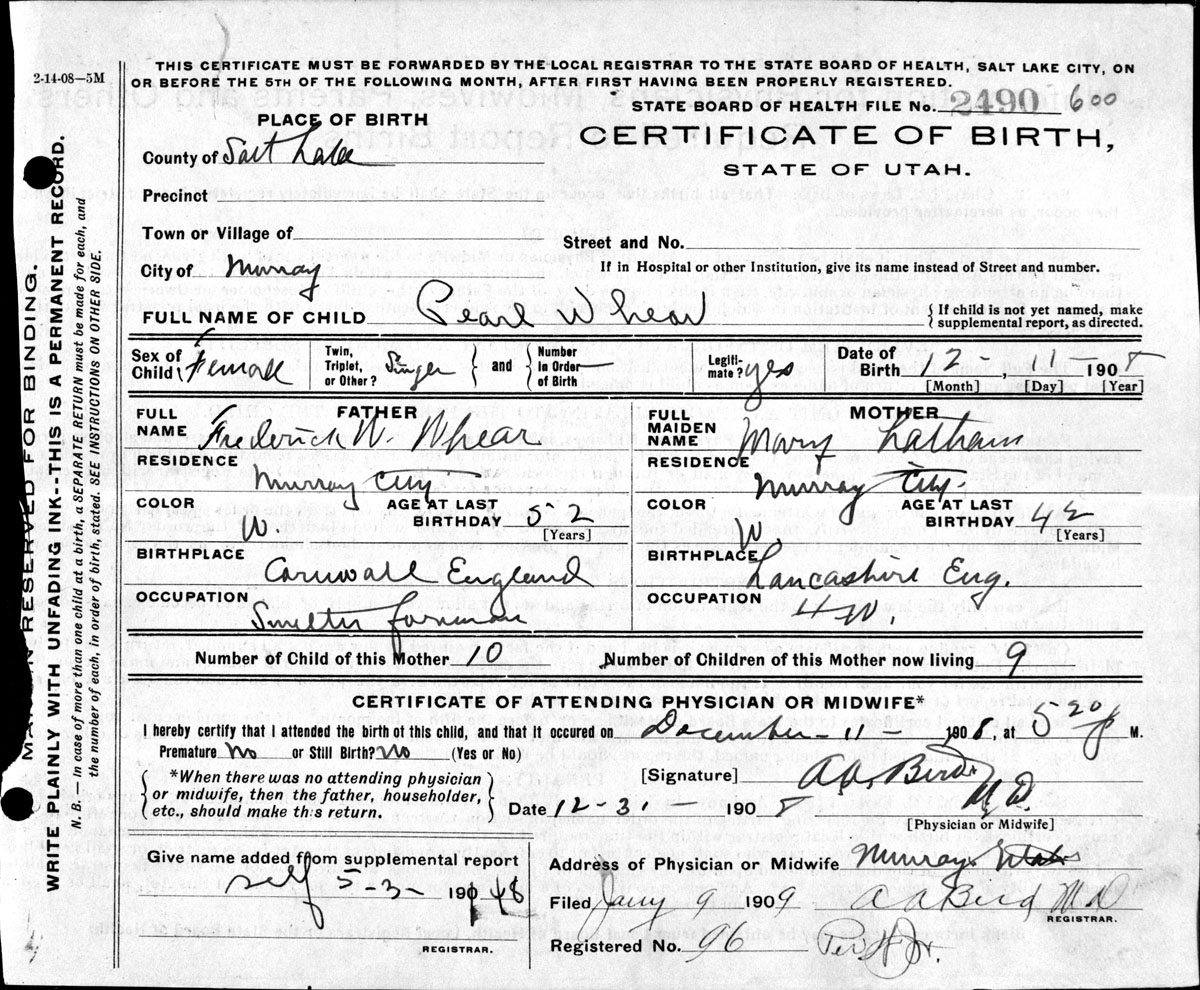 2-14-08—5M
THIS CERTIFICATE MUST BE FORWARDED BY THE LOCAL REGISTRAR TO THE STATE BOARD OF HEALTH, SALT LAKE CITY, ON
OR BEFORE THE 5TH OF THE FOLLOWING MONTH, AFTER FIRST HAVING BEEN PROPERLY REGISTERED.
STATE BOARD OF HEALTH FILE No. 2490 600
PLACE OF BIRTH
CERTIFICATE OF BIRTH,
STATE OF UTAH.
County of Salt Lake
Precinct
Town or Village of
Street and No.
City of Murray
If in Hospital or other Institution, give its name instead of Street and number.
FULL NAME OF CHILD Pearl Whear
{ If child is not yet named, make
supplemental report, as directed.
Sex of Child Female
Twin, Triplet, or Other?
and
Number in Order of Birth —
Legitimate? yes
Date of Birth 12 - 11 - 1908
[Month] [Day] [Year]
FATHER
FULL NAME Frederick W. Whear
RESIDENCE Murray City
COLOR W.
AGE AT LAST BIRTHDAY 52
[Years]
BIRTHPLACE Cornwall England
OCCUPATION Smelter forman
MOTHER
FULL MAIDEN NAME Mary Latham
RESIDENCE Murray City.
COLOR W.
AGE AT LAST BIRTHDAY 42
[Years]
BIRTHPLACE Lancashire Eng.
OCCUPATION H W.
Number of Child of this Mother 10
Number of Children of this Mother now living 9
CERTIFICATE OF ATTENDING PHYSICIAN OR MIDWIFE*
I hereby certify that I attended the birth of this child, and that it occured on December - 11 - 1908, at 5 20 p M.
Premature No or Still Birth? No (Yes or No)
{ *When there was no attending physician
or midwife, then the father, householder,
etc., should make this return. }
[Signature] A A. Bird M D.
Date 12-31 — 1908
[Physician or Midwife]
Give name added from supplemental report
self 5-3- 1948
REGISTRAR.
Address of Physician or Midwife Murray Utah
Filed Jany 9 1909 A A Bird M D
REGISTRAR.
Registered No. 96
MARGIN RESERVED FOR BINDING.
WRITE PLAINLY WITH UNFADING INK--THIS IS A PERMANENT RECORD.
N. B.—In case of more than one child at a birth, a SEPARATE RETURN must be made for each, and
the number of each, in order of birth, stated. SEE INSTRUCTIONS ON OTHER SIDE.